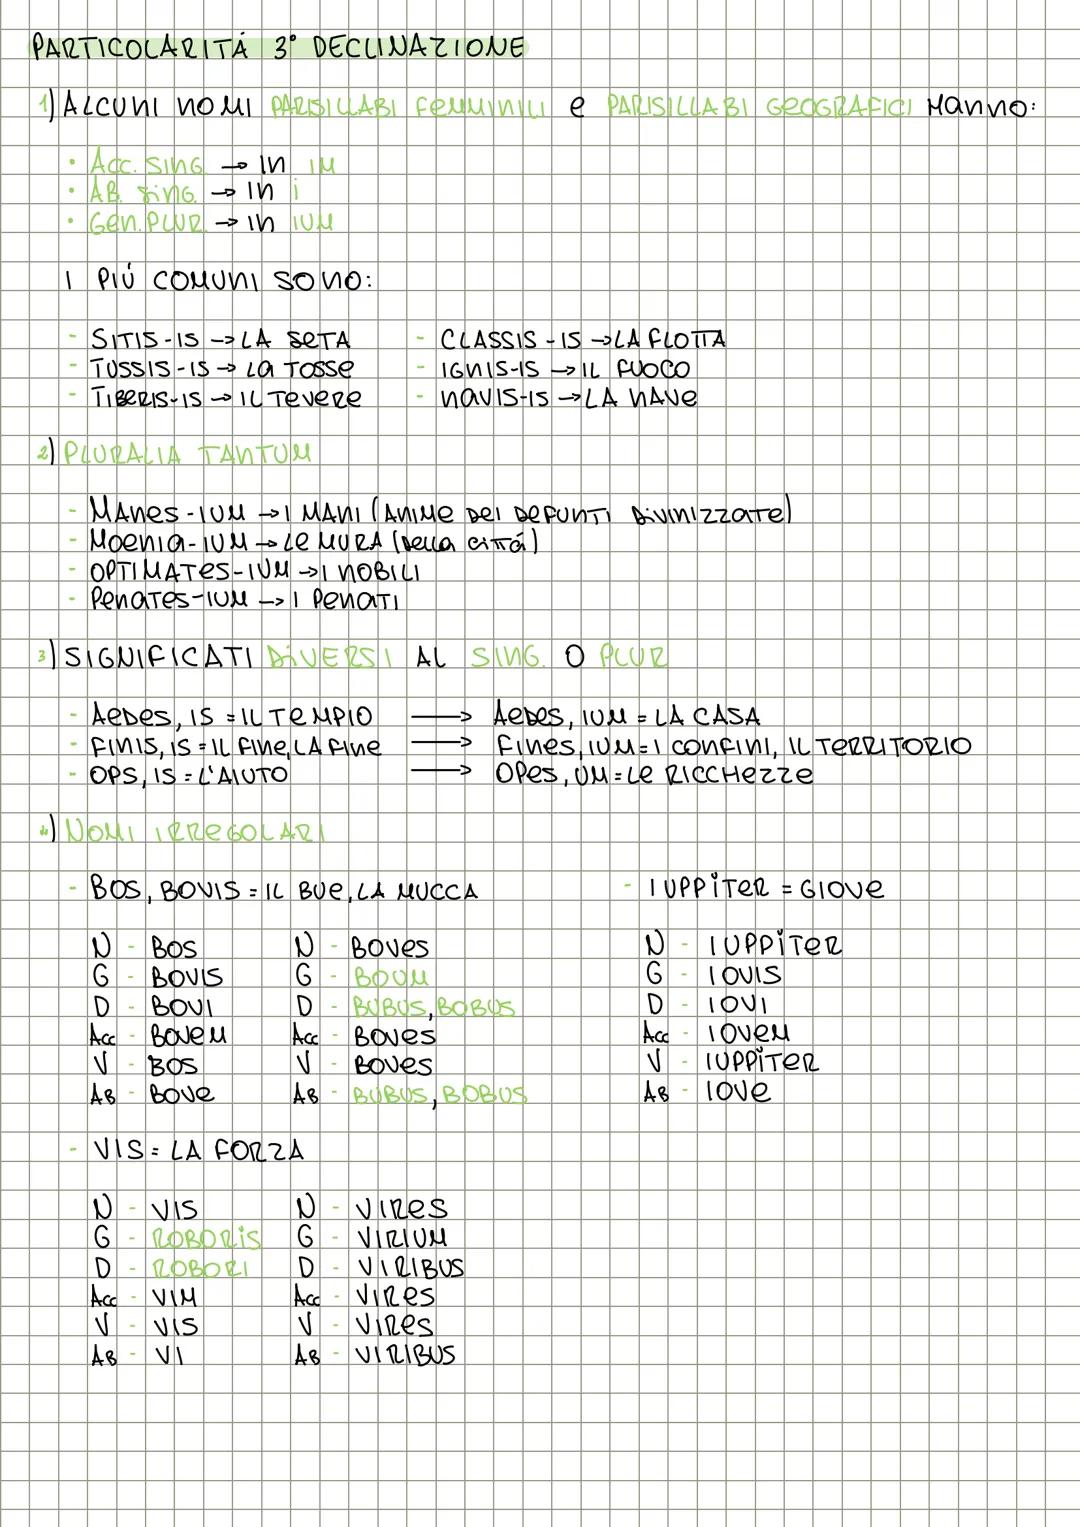 PARTICOLARITÁ 3° DECLINAZIONE
1) ALCUNI NOMI PARISILLABI FEMMINILI e PARISILLABI GEOGRAFICI HANNO:
• ACC. SING → IN IM
• AB. SING. → IN i
• GEN. PLUR. → IN IUM
I PIÚ COMUNI SONO:
- SITIS-IS → LA SETA
- CLASSIS-IS → LA FLOTTA
- TUSSIS-IS → LA TOSSE
- IGNIS-IS → IL FUOCO
- TIBERIS-IS → IL TEVERE
- NAVIS-IS → LA NAVE
2) PLURALIA TANTUM
- MANES-IUM → I MANI (ANIME DEI DEFUNTI DIVINIZZATE)
- MOENIA-IUM → LE MURA (DELLA CITTÁ)
- OPTIMATES-IUM → I NOBILI
- PENATES-IUM → I PENATI
3) SIGNIFICATI DIVERSI AL SING. O PLUR
- AEDES, IS = IL TEMPIO → AEDES, IUM = LA CASA
- FINIS, IS = IL FINE, LA FINE → FINES, IUM = I CONFINI, IL TERRITORIO
- OPS, IS = L'AIUTO → OPES, UM = LE RICCHEZZE
4) NOMI IRREGOLARI
- BOS, BOVIS = IL BUE, LA MUCCA
- IUPPITER = GIOVE
N - BOS N - BOVES N - IUPPITER
G - BOVIS G - BOUM G - IOVIS
D - BOVI D - BUBUS, BOBUS D - IOVI
ACC - BOVEM ACC - BOVES ACC - IOVEM
V - BOS V - BOVES V - IUPPITER
AB - BOVE AB - BUBUS, BOBUS AB - IOVE
- VIS = LA FORZA
N - VIS N - VIRES
G - ROBORIS G - VIRIUM
D - ROBORI D - VIRIBUS
ACC - VIM ACC - VIRES
V - VIS V - VIRES
AB - VI AB - VIRIBUS